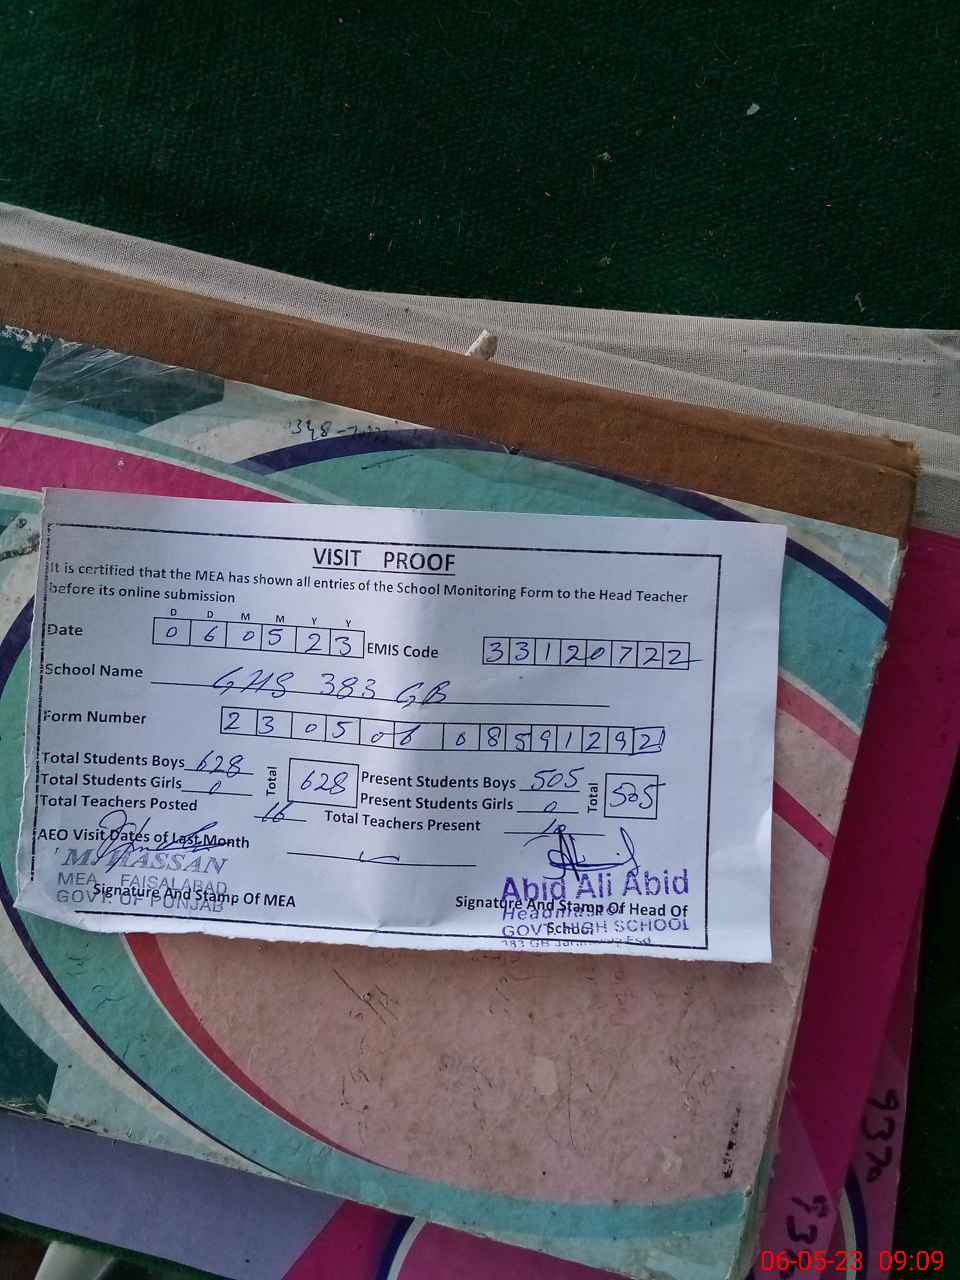 VISIT PROOF
It is certified that the MEA has shown all entries of the School Monitoring Form to the Head Teacher
before its online submission
D D M M Y Y
Date 0 6 0 5 2 3 EMIS Code 3 3 1 2 0 7 2 2
School Name GHS 383 GB
Form Number 2 3 0 5 0 6 0 8 5 9 1 2 9 2
Total Students Boys 628 Total 628 Present Students Boys 505 Total 505
Total Students Girls 0 Present Students Girls 0
Total Teachers Posted 16 Total Teachers Present
AEO Visit Dates of Last Month
M. HASSAN
MEA, FAISALABAD
GOVT. OF PUNJAB
Signature And Stamp Of MEA
Abid Ali Abid
Headmaster
GOVT. HIGH SCHOOL
383 GB
Signature And Stamp Of Head Of
School
9370
06-05-23 09:09